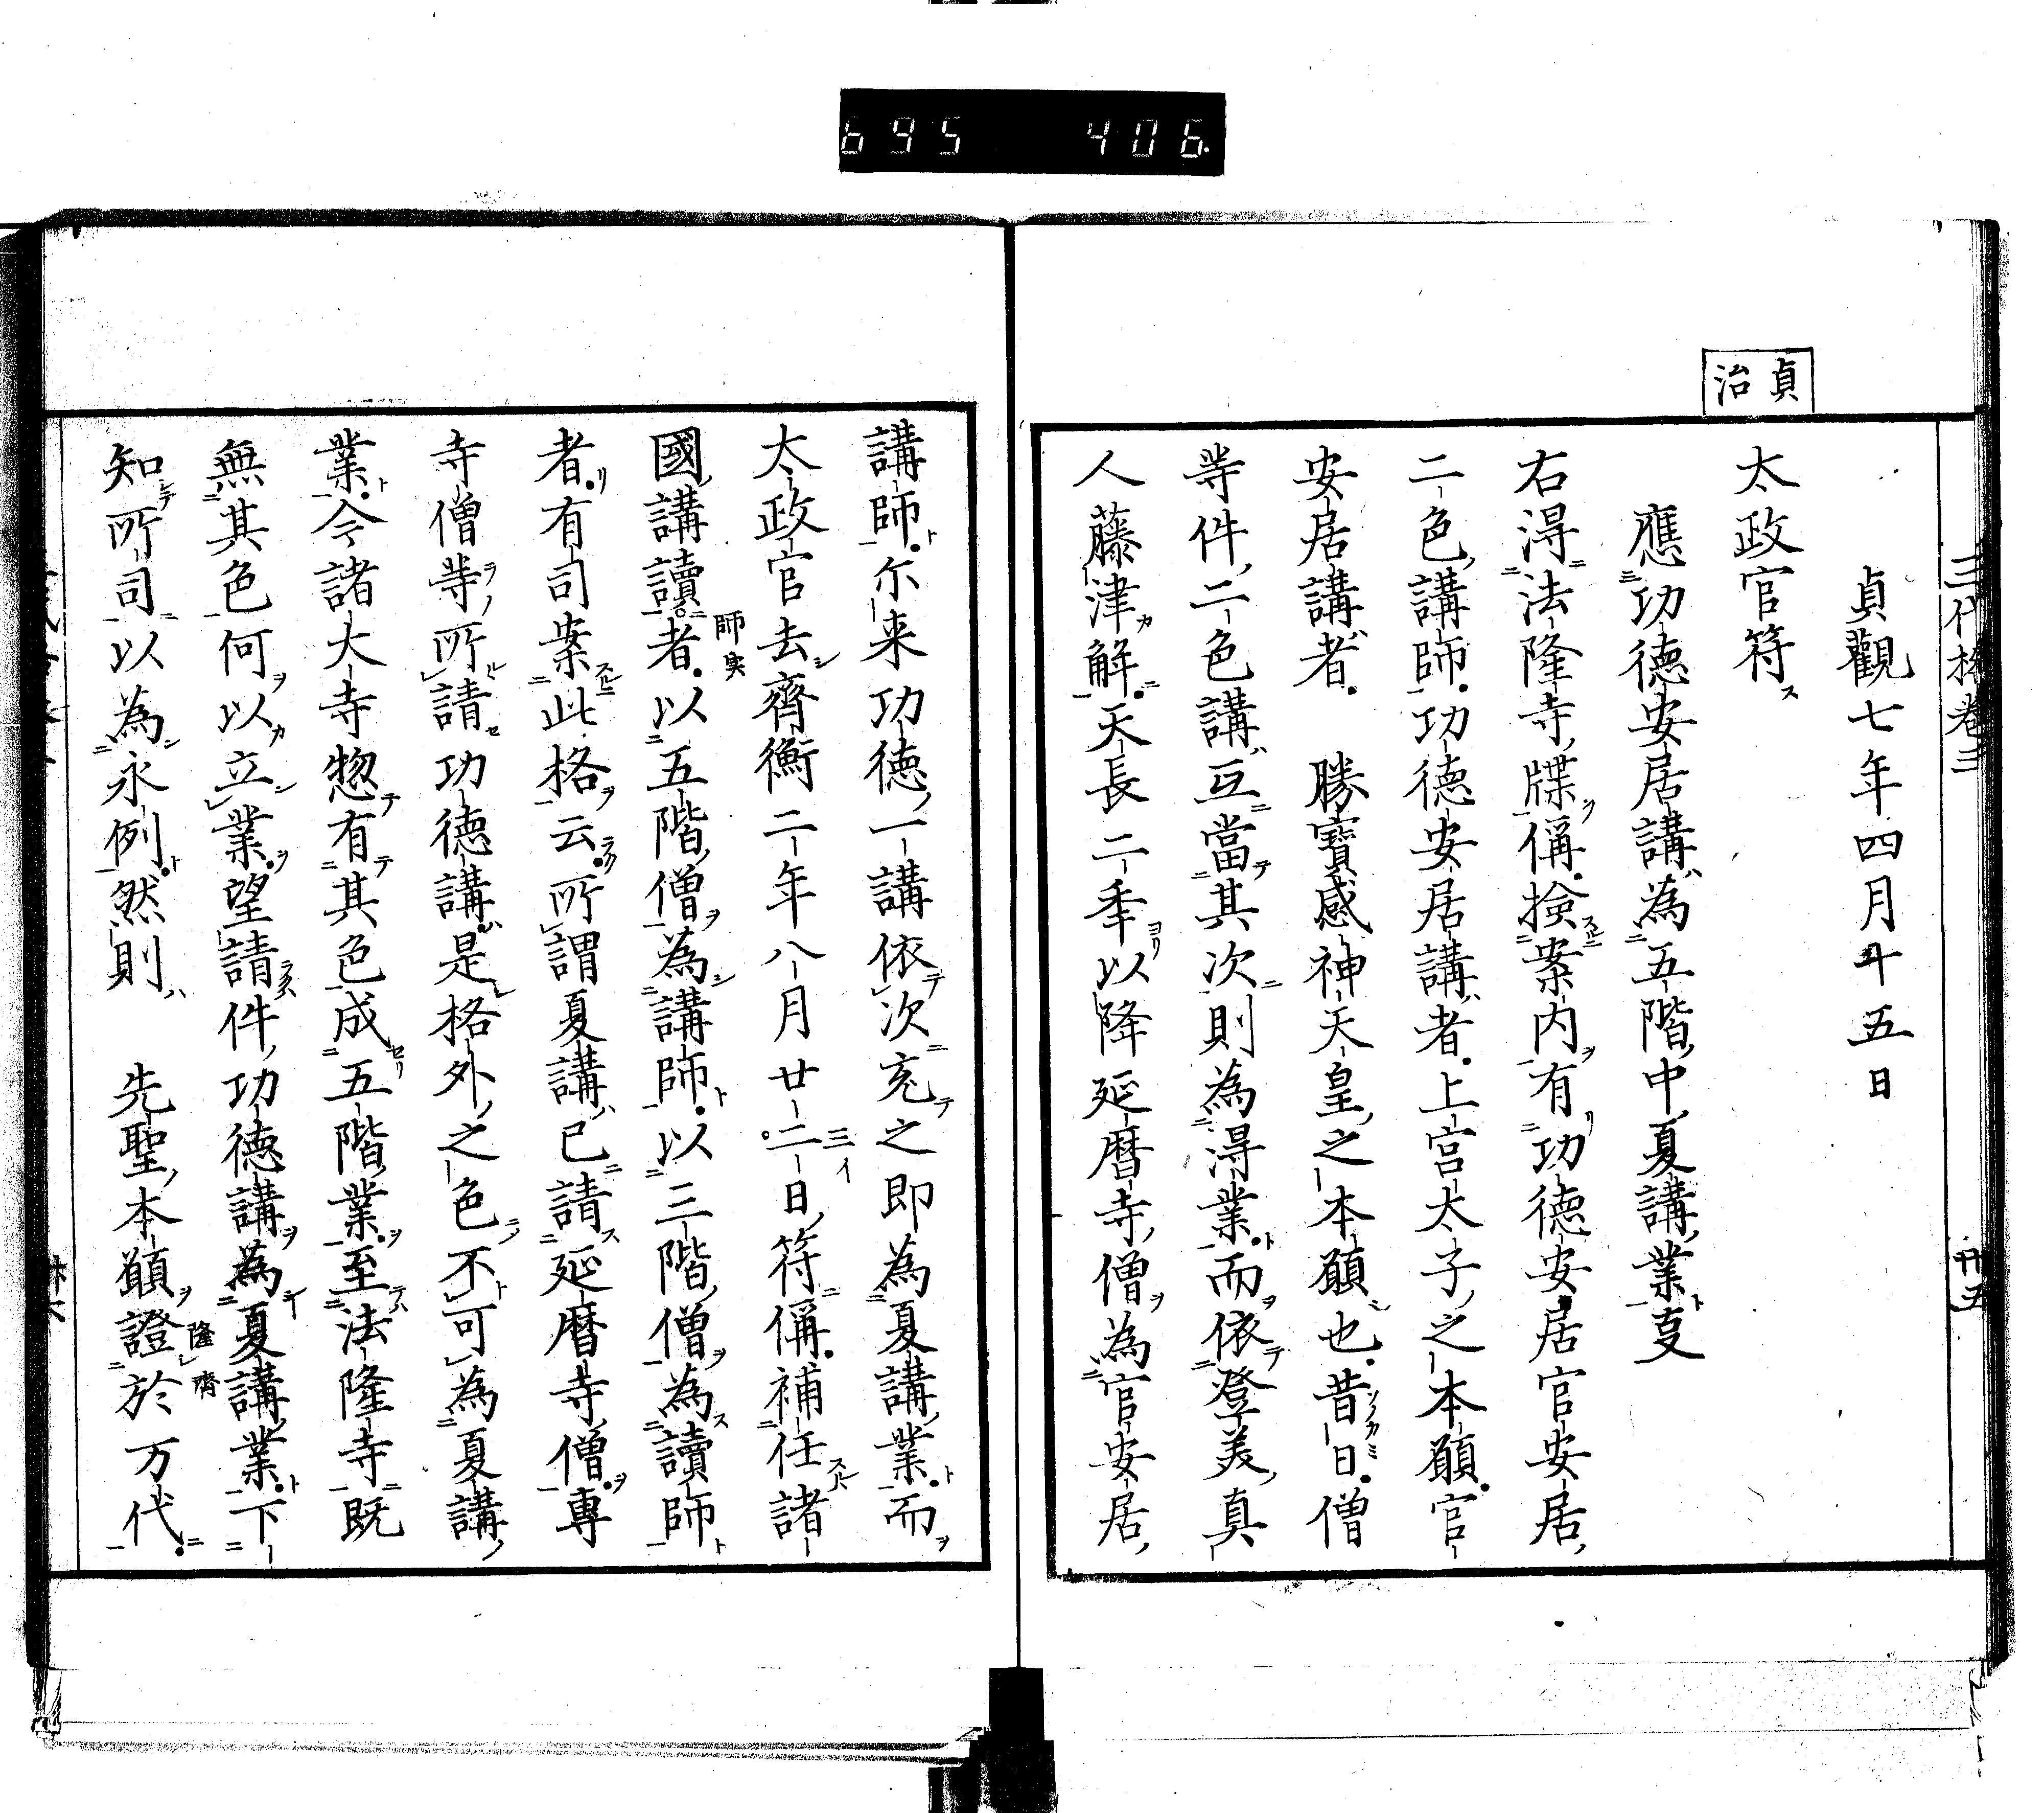 695 406
三代格卷三
卅五
貞治
貞觀七年四月十五日
太政官符
應功徳安居講為五階中夏講業㕝
右淂法隆寺牒偁撿案内有功徳安居官安居
二色講師功徳安居講者上宮太子之本願官
安居講者 勝寳感神天皇之本願也昔日僧
等件二色講互當其次則為淂業而依登美真
人藤津解天長二季以降延暦寺僧為官安居
講師尓来功徳一講依次充之即為夏講業而
太政官去齊衡二年八月廿二日符偁補任諸
國講讀者以五階僧為講師以三階僧為讀師
者有司案此格云所謂夏講已請延暦寺僧專
寺僧等所請功徳講是格外之色不可為夏講
業今諸大寺惣有其色成五階業至法隆寺既
無其色何以立業望請件功徳講為夏講業下
知所司以為永例然則 先聖本願證於万代